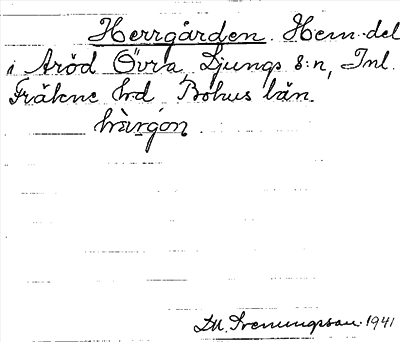 Herrgården. Hem.del
i Aröd Övra Ljungs s:n, Inl.
Fräkne hd Bohus län.
hærgón
D.M. Svenungsson. 1941